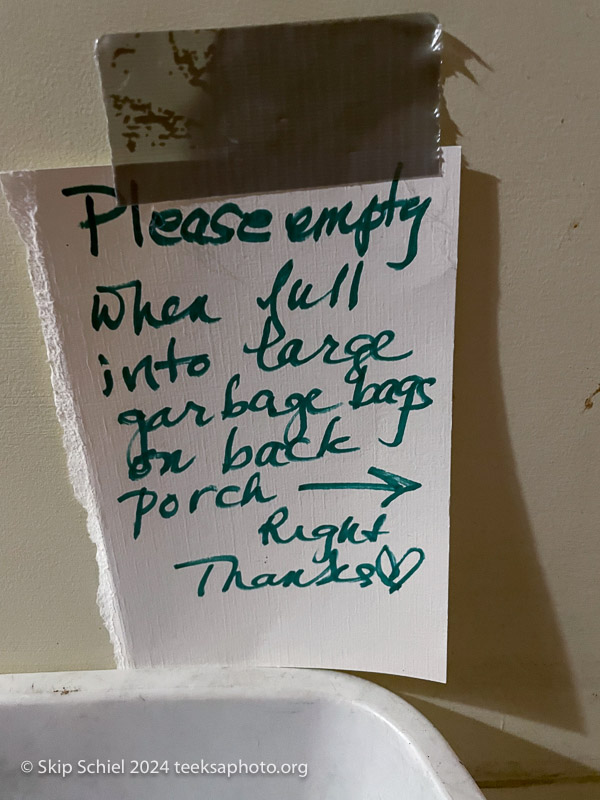 Please empty
when full
into large
garbage bags
on back
porch →
Right
Thanks♡
© Skip Schiel 2024 teeksaphoto.org